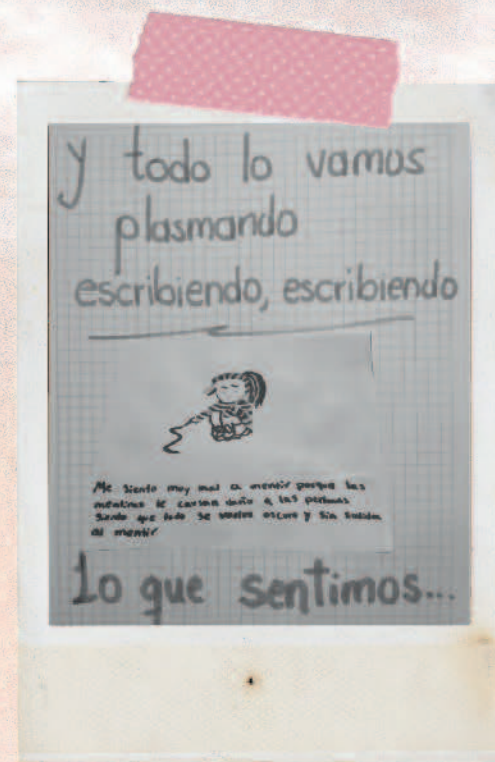 y todo lo vamos
plasmando
escribiendo, escribiendo
Me siento muy mal a mentir porque las
mentiras le causan daño a las personas
siento que todo se vuelve oscuro y sin salida
al mentir
Lo que sentimos...